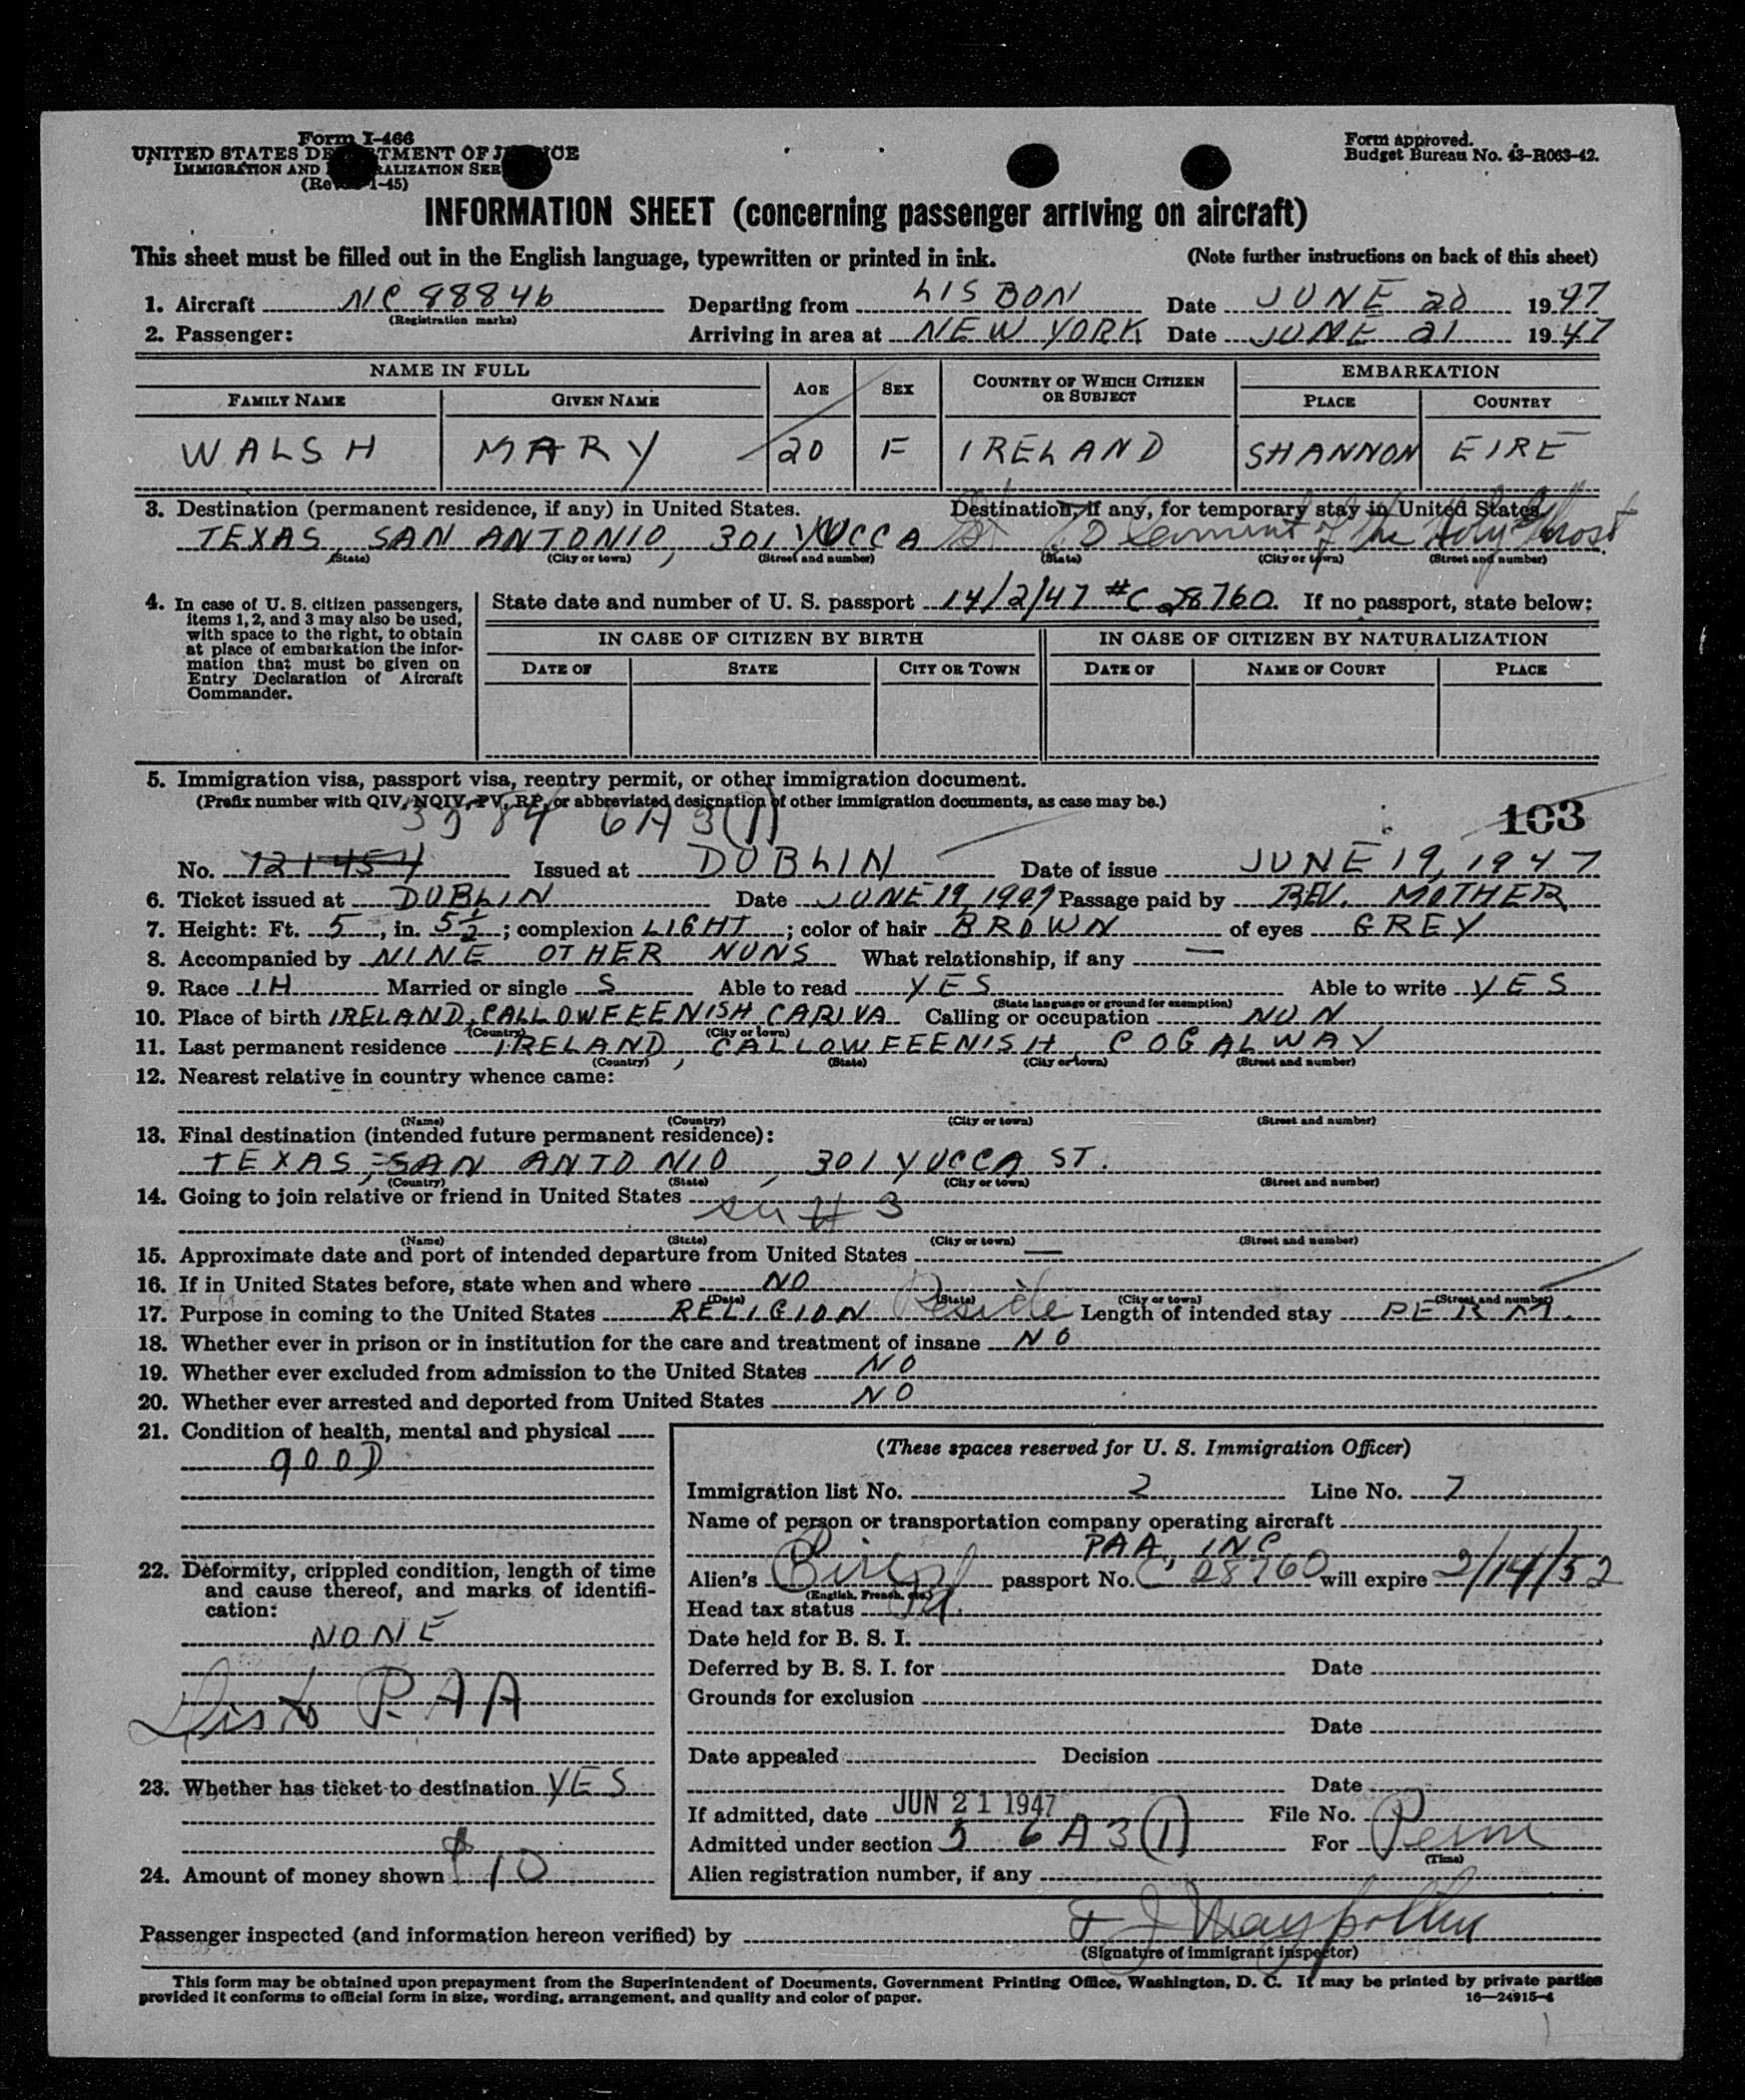 Form I-466
UNITED STATES DEPARTMENT OF JUSTICE
IMMIGRATION AND NATURALIZATION SER
(Rev. 1-45)
Form approved.
Budget Bureau No. 43-R063-42.
INFORMATION SHEET (concerning passenger arriving on aircraft)
This sheet must be filled out in the English language, typewritten or printed in ink. (Note further instructions on back of this sheet)
1. Aircraft NC 88846 Departing from LISBON Date JUNE 20 1947
(Registration marks)
2. Passenger: Arriving in area at NEW YORK Date JUNE 21 1947
NAME IN FULL AGE SEX COUNTRY OF WHICH CITIZEN OR SUBJECT EMBARKATION
FAMILY NAME GIVEN NAME PLACE COUNTRY
WALSH MARY 20 F IRELAND SHANNON EIRE
3. Destination (permanent residence, if any) in United States. Destination, if any, for temporary stay in United States.
TEXAS, SAN ANTONIO, 301 YUCCA St of the Holy Ghost
(State) (City or town) (Street and number) (State) (City or town) (Street and number)
4. In case of U. S. citizen passengers, items 1, 2, and 3 may also be used, with space to the right, to obtain at place of embarkation the information that must be given on Entry Declaration of Aircraft Commander.
State date and number of U. S. passport 14/2/47 #C 28760. If no passport, state below:
IN CASE OF CITIZEN BY BIRTH IN CASE OF CITIZEN BY NATURALIZATION
DATE OF STATE CITY OR TOWN DATE OF NAME OF COURT PLACE
5. Immigration visa, passport visa, reentry permit, or other immigration document.
(Prefix number with QIV, NQIV, PV, RP, or abbreviated designation of other immigration documents, as case may be.)
6A3(1)
103
No. 121454 Issued at DUBLIN Date of issue JUNE 19, 1947
6. Ticket issued at DUBLIN Date JUNE 19, 1947 Passage paid by REV. MOTHER
7. Height: Ft. 5, in. 5½; complexion LIGHT; color of hair BROWN of eyes GREY
8. Accompanied by NINE OTHER NUNS What relationship, if any —
9. Race IH Married or single S Able to read YES Able to write YES
(State language or ground for exemption)
10. Place of birth IRELAND, CALLOWFEEENISH CARIVA Calling or occupation NUN
(Country) (City or town)
11. Last permanent residence IRELAND, CALLOWFEEENISH CO GALWAY
(Country) (State) (City or town) (Street and number)
12. Nearest relative in country whence came:
(Name) (Country) (City or town) (Street and number)
13. Final destination (intended future permanent residence):
TEXAS, SAN ANTONIO, 301 YUCCA ST.
(Country) (State) (City or town) (Street and number)
14. Going to join relative or friend in United States
# 3
(Name) (State) (City or town) (Street and number)
15. Approximate date and port of intended departure from United States —
16. If in United States before, state when and where NO
(Date) (State) (City or town) (Street and number)
17. Purpose in coming to the United States RELIGION Reside Length of intended stay PERM.
18. Whether ever in prison or in institution for the care and treatment of insane NO
19. Whether ever excluded from admission to the United States NO
20. Whether ever arrested and deported from United States NO
21. Condition of health, mental and physical
GOOD
22. Deformity, crippled condition, length of time and cause thereof, and marks of identification:
NONE
Dis to PAA
23. Whether has ticket to destination YES
24. Amount of money shown $10
(These spaces reserved for U. S. Immigration Officer)
Immigration list No. 2 Line No. 7
Name of person or transportation company operating aircraft
PAA, INC
Alien's passport No. C 28760 will expire 2/14/52
(English, French, etc.)
Head tax status
Date held for B. S. I.
Deferred by B. S. I. for Date
Grounds for exclusion
Date
Date appealed Decision
Date
If admitted, date JUN 21 1947 File No.
Admitted under section 5 6A3(1) For Perm
(Time)
Alien registration number, if any
Passenger inspected (and information hereon verified) by
(Signature of immigrant inspector)
This form may be obtained upon prepayment from the Superintendent of Documents, Government Printing Office, Washington, D. C. It may be printed by private parties
provided it conforms to official form in size, wording, arrangement, and quality and color of paper. 16—24915-4